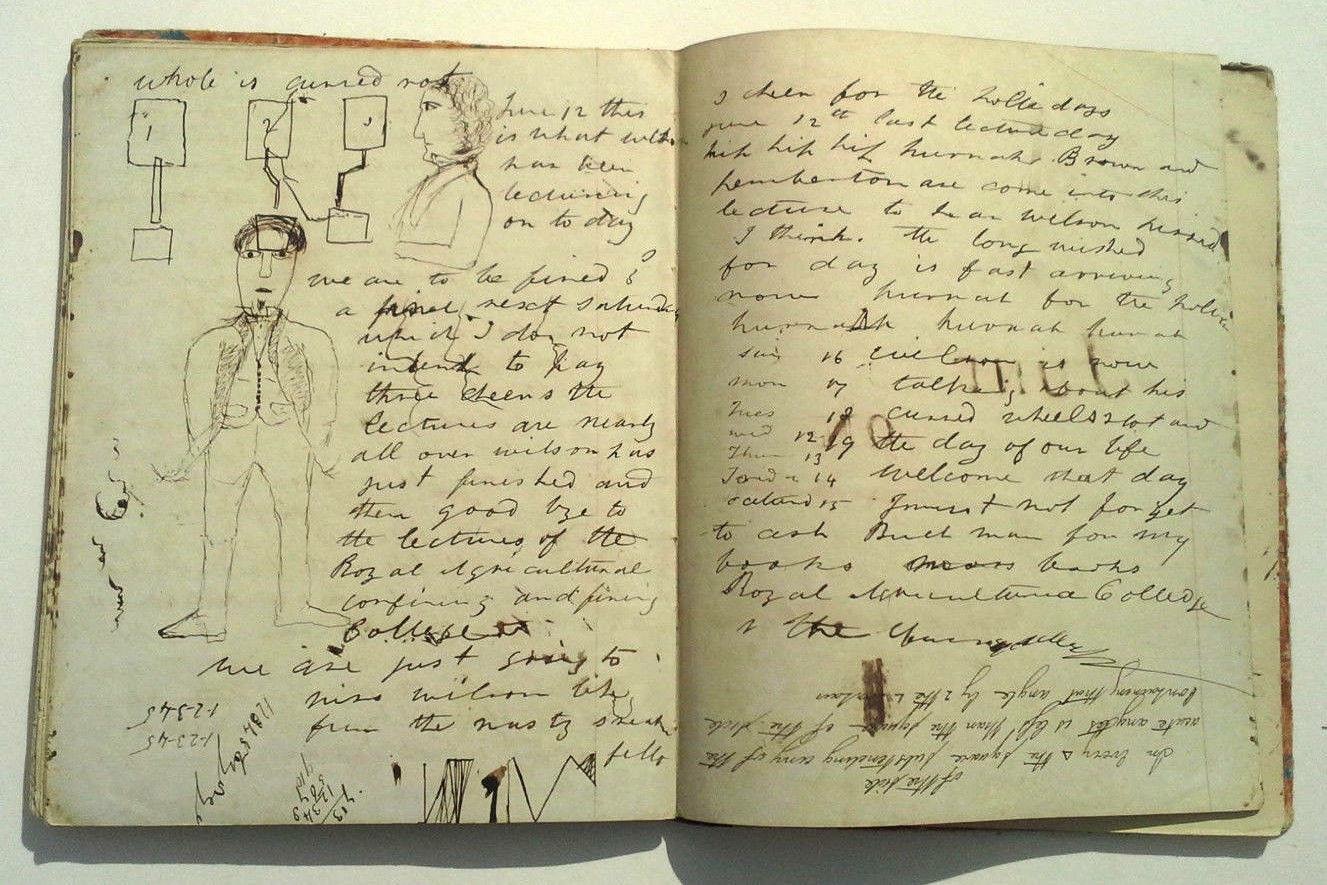 whole is cursed rot
1 2 3
June 12 this
is what wilson
has been
lecturing
on to day
we are to be fined
a next saturday
which I do not
intend to pay
three cheers the
lectures are nearly
all over wilson has
just finished and
then good bye to
the lectures of the
Royal Agricultural
confining and fining
College
we are just going to
hiss wilson like
fun the nasty
fello
12345
12345
I cheer for the holiedays
june 12th last lecture day
hip hip hip hurrah Brown and
Pemberton are come into this
lecture to hear wilson hissed
I think. the long wished
for day is fast arriving
now hurrah for the
hurrah hurrah hurrah
sun 16 wilson is now
mon 17 talking about his
Tues 18 cursed wheels rot and
wed 12 19 the day of our life
Thur 13
14 welcome that day
15 I must not forget
to ask Buckman for my
books books
Royal Agricultural Colledge
the
In every △ the square subtending any of the
acute angles is less than the square of the side
containing that angle by 2 the
of the side